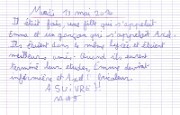 Mardi 17 mai 2016
Il était fois, une fille qui s'appelait
Emma et un garçon qui s'appelait Axel.
Ils étaient dans le même lycée et étaient
meilleurs amis. Quand ils eurent
terminé leurs études, Emma devint
infirmière et Axel
A SUIVRE !!